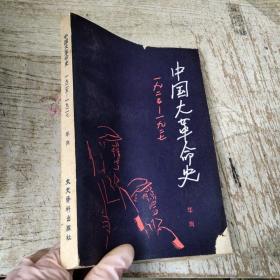 中国大革命史
一九二四—一九二七
华岗
中国大革命史
一九二五—一九二七
华岗
文史资料出版社